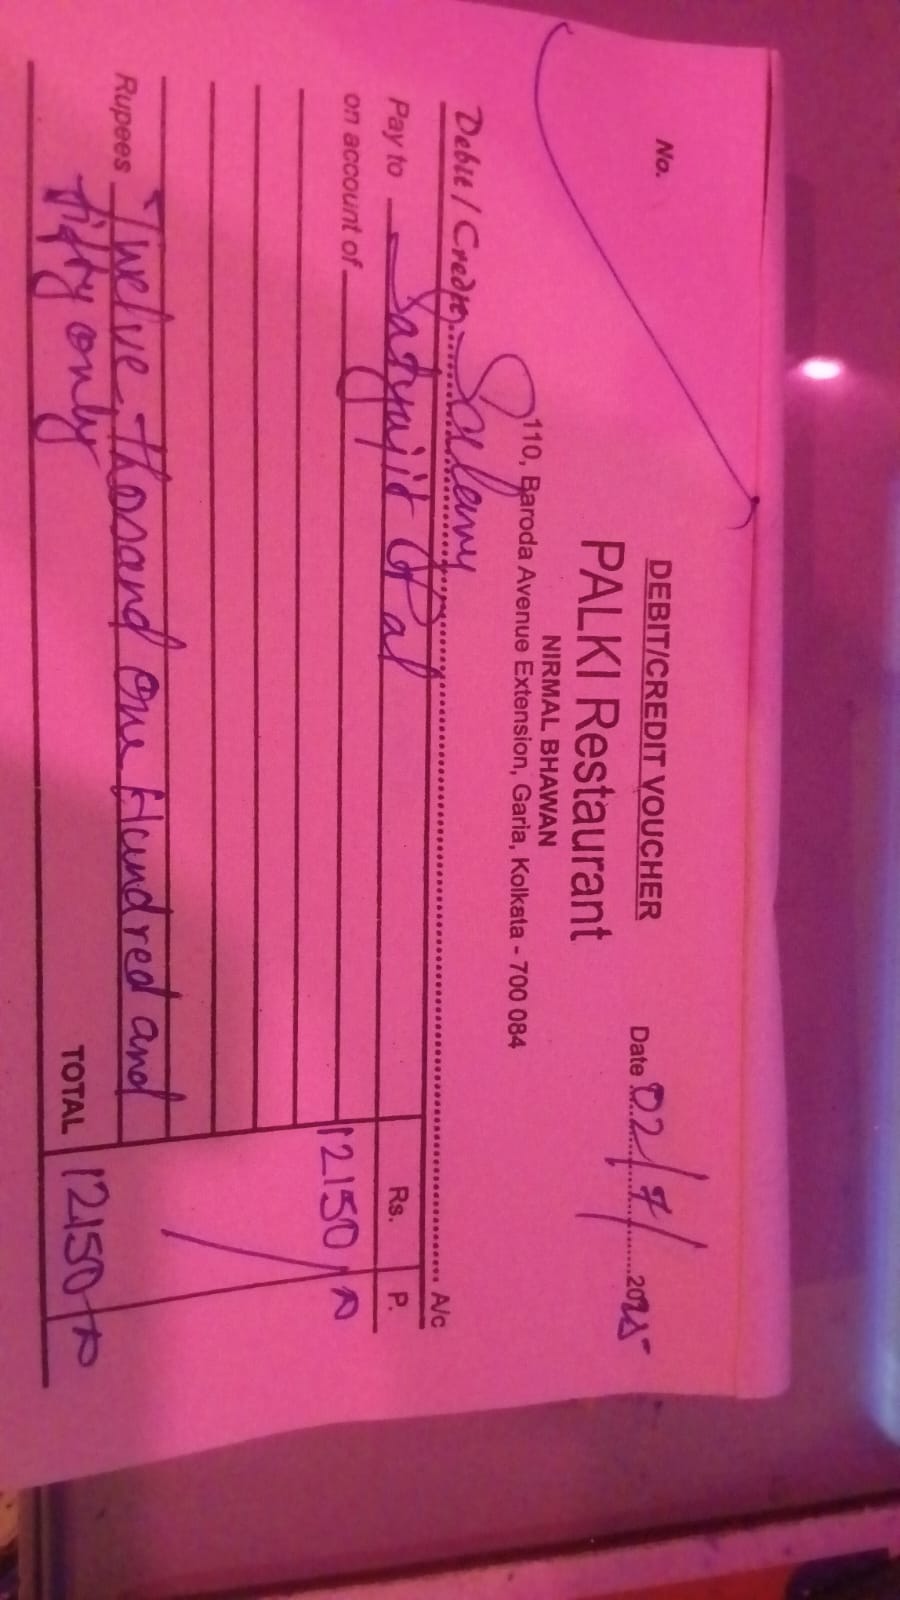 DEBIT/CREDIT VOUCHER
No.
Date 02/7/2025
PALKI Restaurant
NIRMAL BHAWAN
110, Baroda Avenue Extension, Garia, Kolkata - 700 084
Debit / Credit Salary A/c
Pay to Satyajit Pal Rs. P.
on account of 12150
Rupees Twelve Thosand one Hundred and
fifty only TOTAL 12150